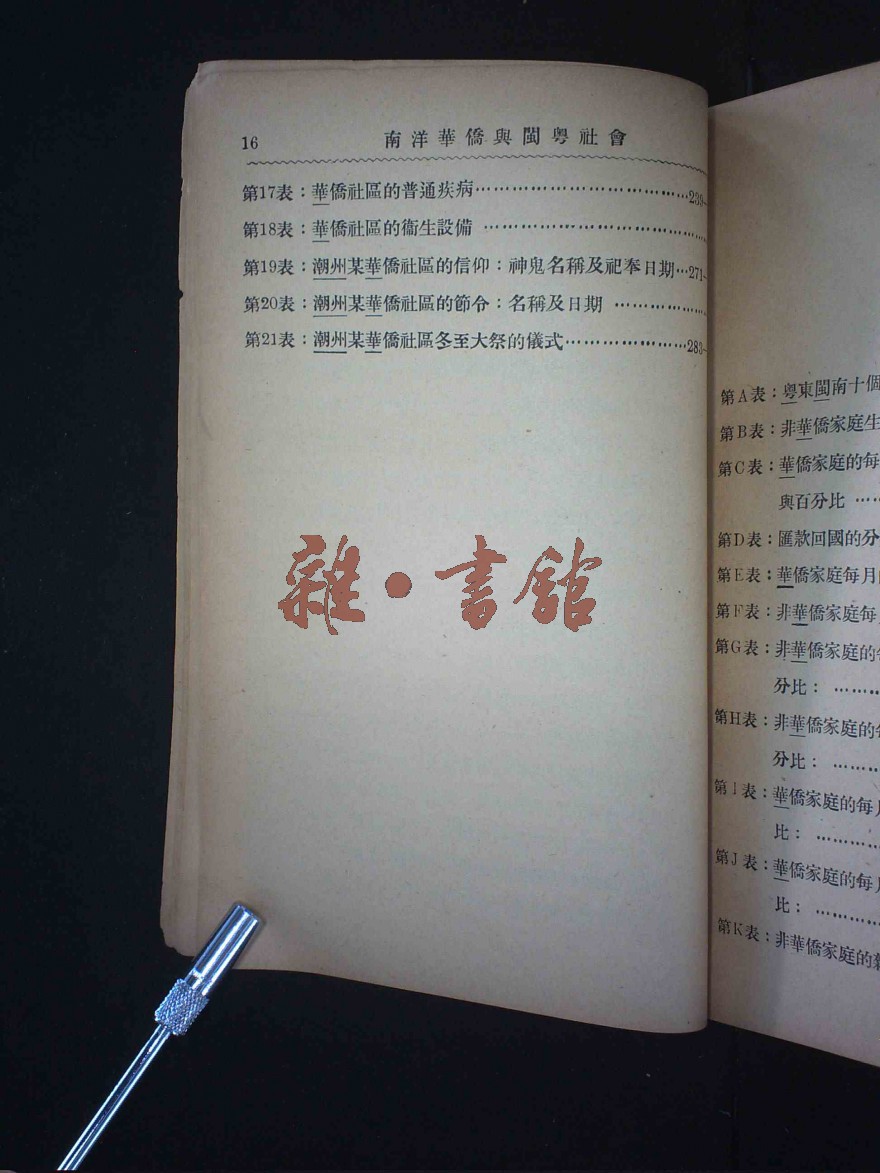 16 南洋華僑與閩粤社會
第17表：華僑社區的普通疾病……………………………239-
第18表：華僑社區的衞生設備 ……………………………
第19表：潮州某華僑社區的信仰：神鬼名稱及祀奉日期…271-
第20表：潮州某華僑社區的節令：名稱及日期 ……………
第21表：潮州某華僑社區冬至大祭的儀式…………………283-
雜•書館
第A表：粤東閩南十個
第B表：非華僑家庭生
第C表：華僑家庭的每
與百分比 ……
第D表：匯款回國的分
第E表：華僑家庭每月
第F表：非華僑家庭每
第G表：非華僑家庭的每
分比： ………
第H表：非華僑家庭的每
分比： ………
第I表：華僑家庭的每月
比： …………
第J表：華僑家庭的每月
比： …………
第K表：非華僑家庭的雜